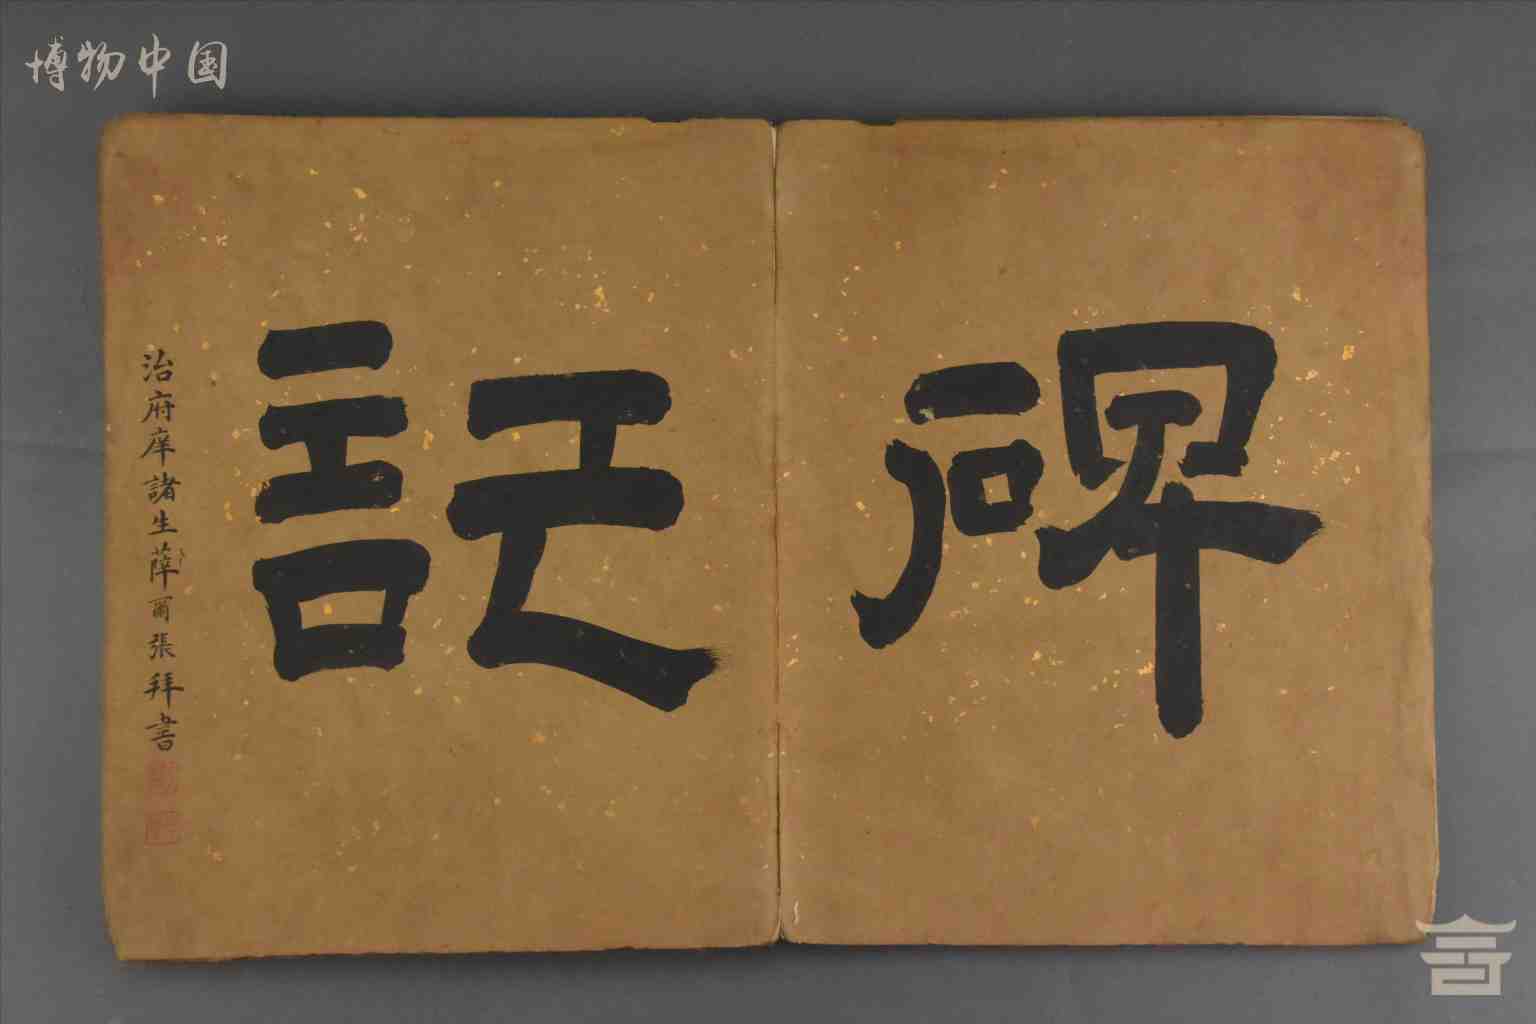 博物中国
碑
記
治府庠諸生薛爾張拜書